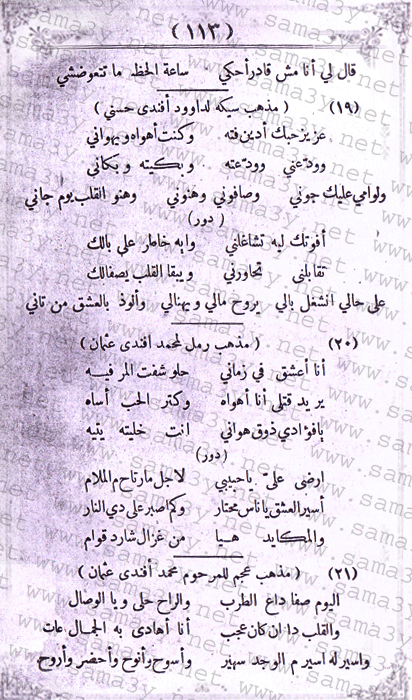 (١١٣)
قال لي أنا مش قادر أحكي ساعة الحظ ما تتعوضشي
(١٩) (مذهب سيكه لداوود أفندى حسني)
عزيز حبك أدين فته وكنت أهواه ويهواني
وودّعني وودّعته وبكيته وبكاني
ولوامي عليك جوني وصافوني وهنوني وهنو القلب يوم جاني
(دور)
أفوتك ليه تشاغلني وايه خاطر على بالك
تقابلني تحاورني ويبقا القلب يصفالك
على حالي انشغل بالي يروح مالي ويهنالي وألوذ بالعشق من تاني
(٢٠) (مذهب رمل لمحمد افندى عثمان)
أنا أعشق في زماني حلو شفت المر فيه
يريد قتلى أنا أهواه وكتر الحب أساه
يافؤادي ذوق هواني انت خليته يتيه
(دور)
ارضى علىّ ياحبيبي لاجل مارتاح م الملام
أسير العشق ياناس محتار وكم اصبر على دي النار
والمكايد هيا من غزال شارد قوام
(٢١) (مذهب عجم للمرحوم محمد أفندى عثمان)
اليوم صفا داعى الطرب والراح حلى ويا الوصال
والقلب دا ان كان عجب أنا أهادى به الجمال عات
واسير له اسير م الوجد سهير وأسوح وأنوح وأحضر وأروح
www.sama3y.net